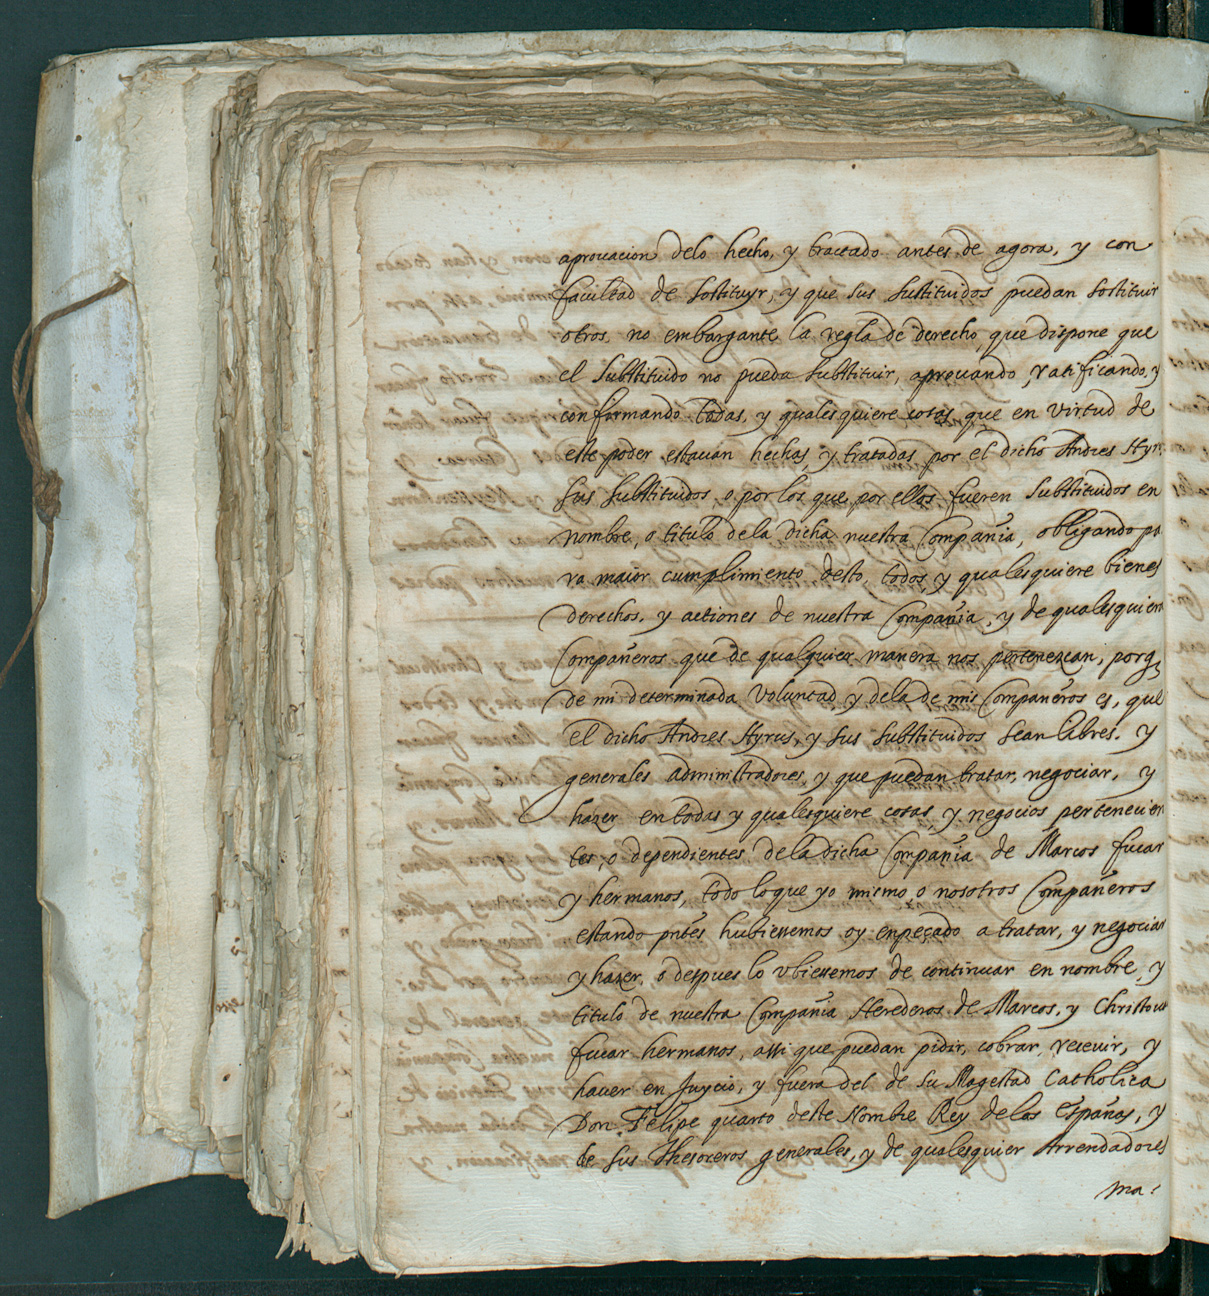 aprouacion delo hecho, y tractado antes de agora, y con
facultad de sostituyr, y que sus sustituidos puedan sostituir
otros, no embargante la regla de derecho, que dispone que
el substituido no pueda substituir, aprouando, ratificando, y
conformando todas, y qualesquiere cosas que en virtud de
este poder estauan hechas, y tratadas por el dicho Andres Hyrus
sus substituidos, o por los que por ellos fueren substituidos en
nombre, o titulo dela dicha nuestra Compañia, obligando pa
ra maior cumplimiento desto, todos, y qualesquiere bienes
derechos, y actiones de nuestra Compañia, y de qualesquiera
Compañeros que de qualquier manera nos pertenezcan, porq
de mi determinada voluntad, y dela de mis Compañeros es, que
el dicho Andres Hyrus, y sus substituidos sean libres, y
generales administradores, y que puedan tratar, negociar, y
hazer en todas y qualesquiere cosas, y negocios pertenecien
tes, o dependientes dela dicha Compañia de Marcos fucar
y hermanos, todo lo que yo mismo, o nosotros Compañeros
estando pntes hubieremos oy enpeçado a tratar, y negociar
y hazer, o despues lo vbieremos de continuar en nombre, y
titulo de nuestra Compañia Herederos de Marcos, y Christoual
fucar hermanos, assi que puedan pidir, cobrar, receuir, y
hauer en Juycio, y fuera del de su Magestad Catholica
Don Felipe quarto deste Nombre Rey delas españas, y
de sus Thesoreros generales, y de qualesquier Arrendadores
ma: